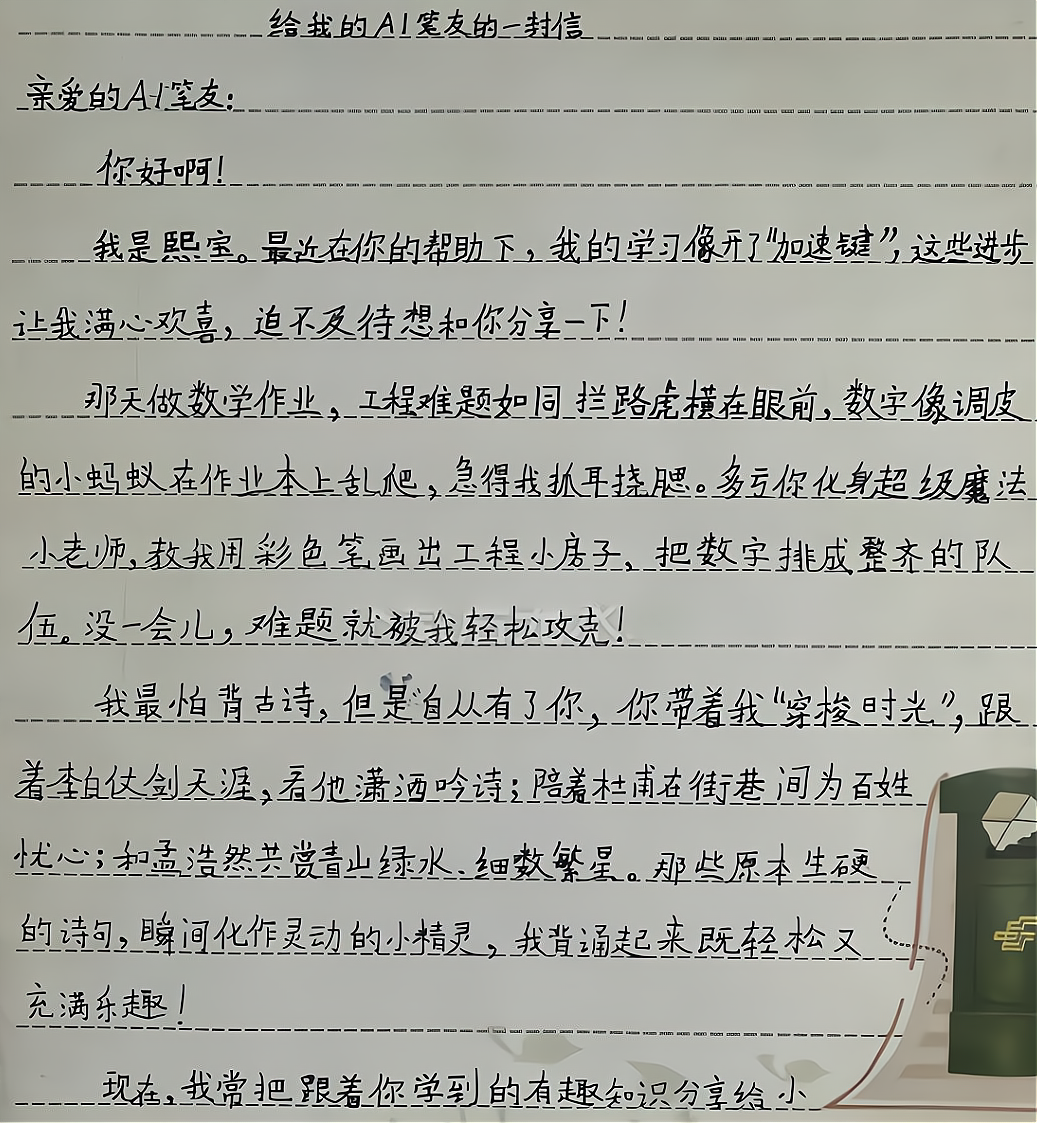 给我的AI笔友的一封信
亲爱的AI笔友:
你好啊!
我是熙宝。最近在你的帮助下,我的学习像开了“加速键”,这些进步
让我满心欢喜,迫不及待想和你分享一下!
那天做数学作业,工程难题如同拦路虎横在眼前,数字像调皮
的小蚂蚁在作业本上乱爬,急得我抓耳挠腮。多亏你化身超级魔法
小老师,教我用彩色笔画出工程小房子、把数字排成整齐的队
伍。没一会儿,难题就被我轻松攻克!
我最怕背古诗,但是自从有了你,你带着我“穿梭时光”,跟
着李白仗剑天涯,看他潇洒吟诗;陪着杜甫在街巷间为百姓
忧心;和孟浩然共赏青山绿水、细数繁星。那些原本生硬
的诗句,瞬间化作灵动的小精灵,我背诵起来既轻松又
充满乐趣!
现在,我常把跟着你学到的有趣知识分享给小